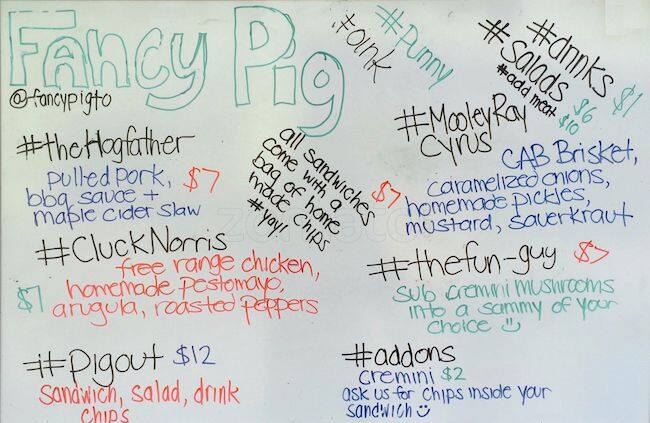 FANCY PIG
@fancypigto
#oink
#Punny
#drinks
$1
#Salads
$6
#add meat
$10
#theHogfather
pulled pork,
bbq sauce +
maple cider slaw
$7
all sandwiches
come with a
bag of home
made chips
#yay!
#MooleyRay
Cyrus
$7
CAB Brisket,
caramelized onions,
homemade pickles,
mustard, sauerkraut
#CluckNorris
$7
free range chicken,
homemade pestomayo,
arugula, roasted peppers
#thefun-guy $7
sub cremini mushrooms
into a sammy of your
choice
#Pigout $12
Sandwich, salad, drink
chips
#addons
cremini $2
ask us for chips inside your
sandwich